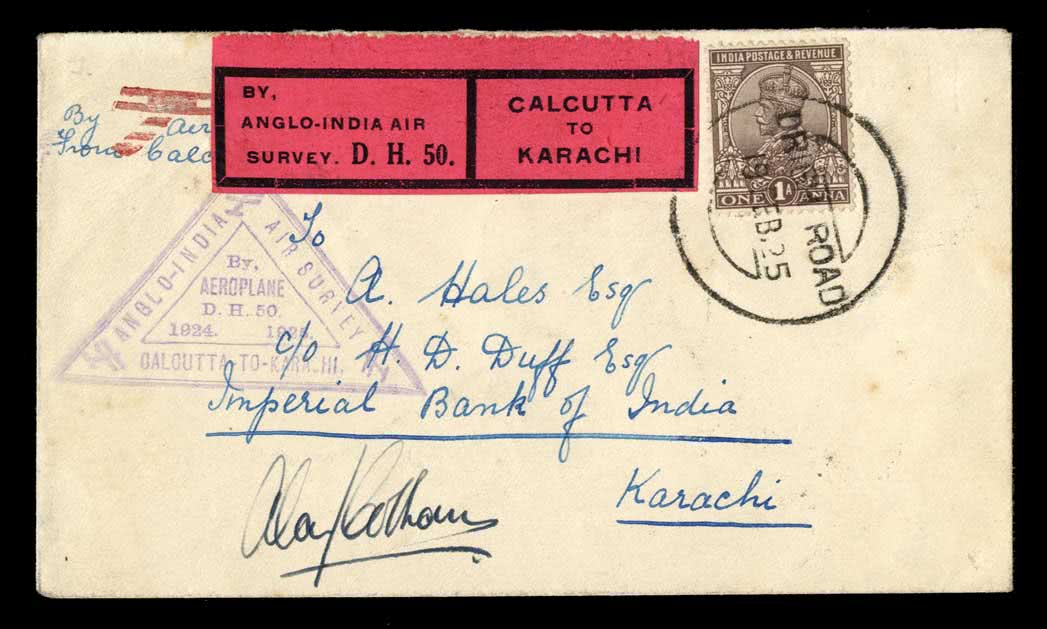 By Air
From Calc
BY,
ANGLO-INDIA AIR
SURVEY. D. H. 50.
CALCUTTA
TO
KARACHI
INDIA POSTAGE & REVENUE
ONE 1A ANNA
DRIGH ROAD
19 FEB. 25
ANGLO-INDIA AIR SURVEY
By,
AEROPLANE
D. H. 50.
1924. 1925.
CALCUTTA-TO-KARACHI.
To
A. Hales Esq
c/o H. D. Duff Esq
Imperial Bank of India
Karachi